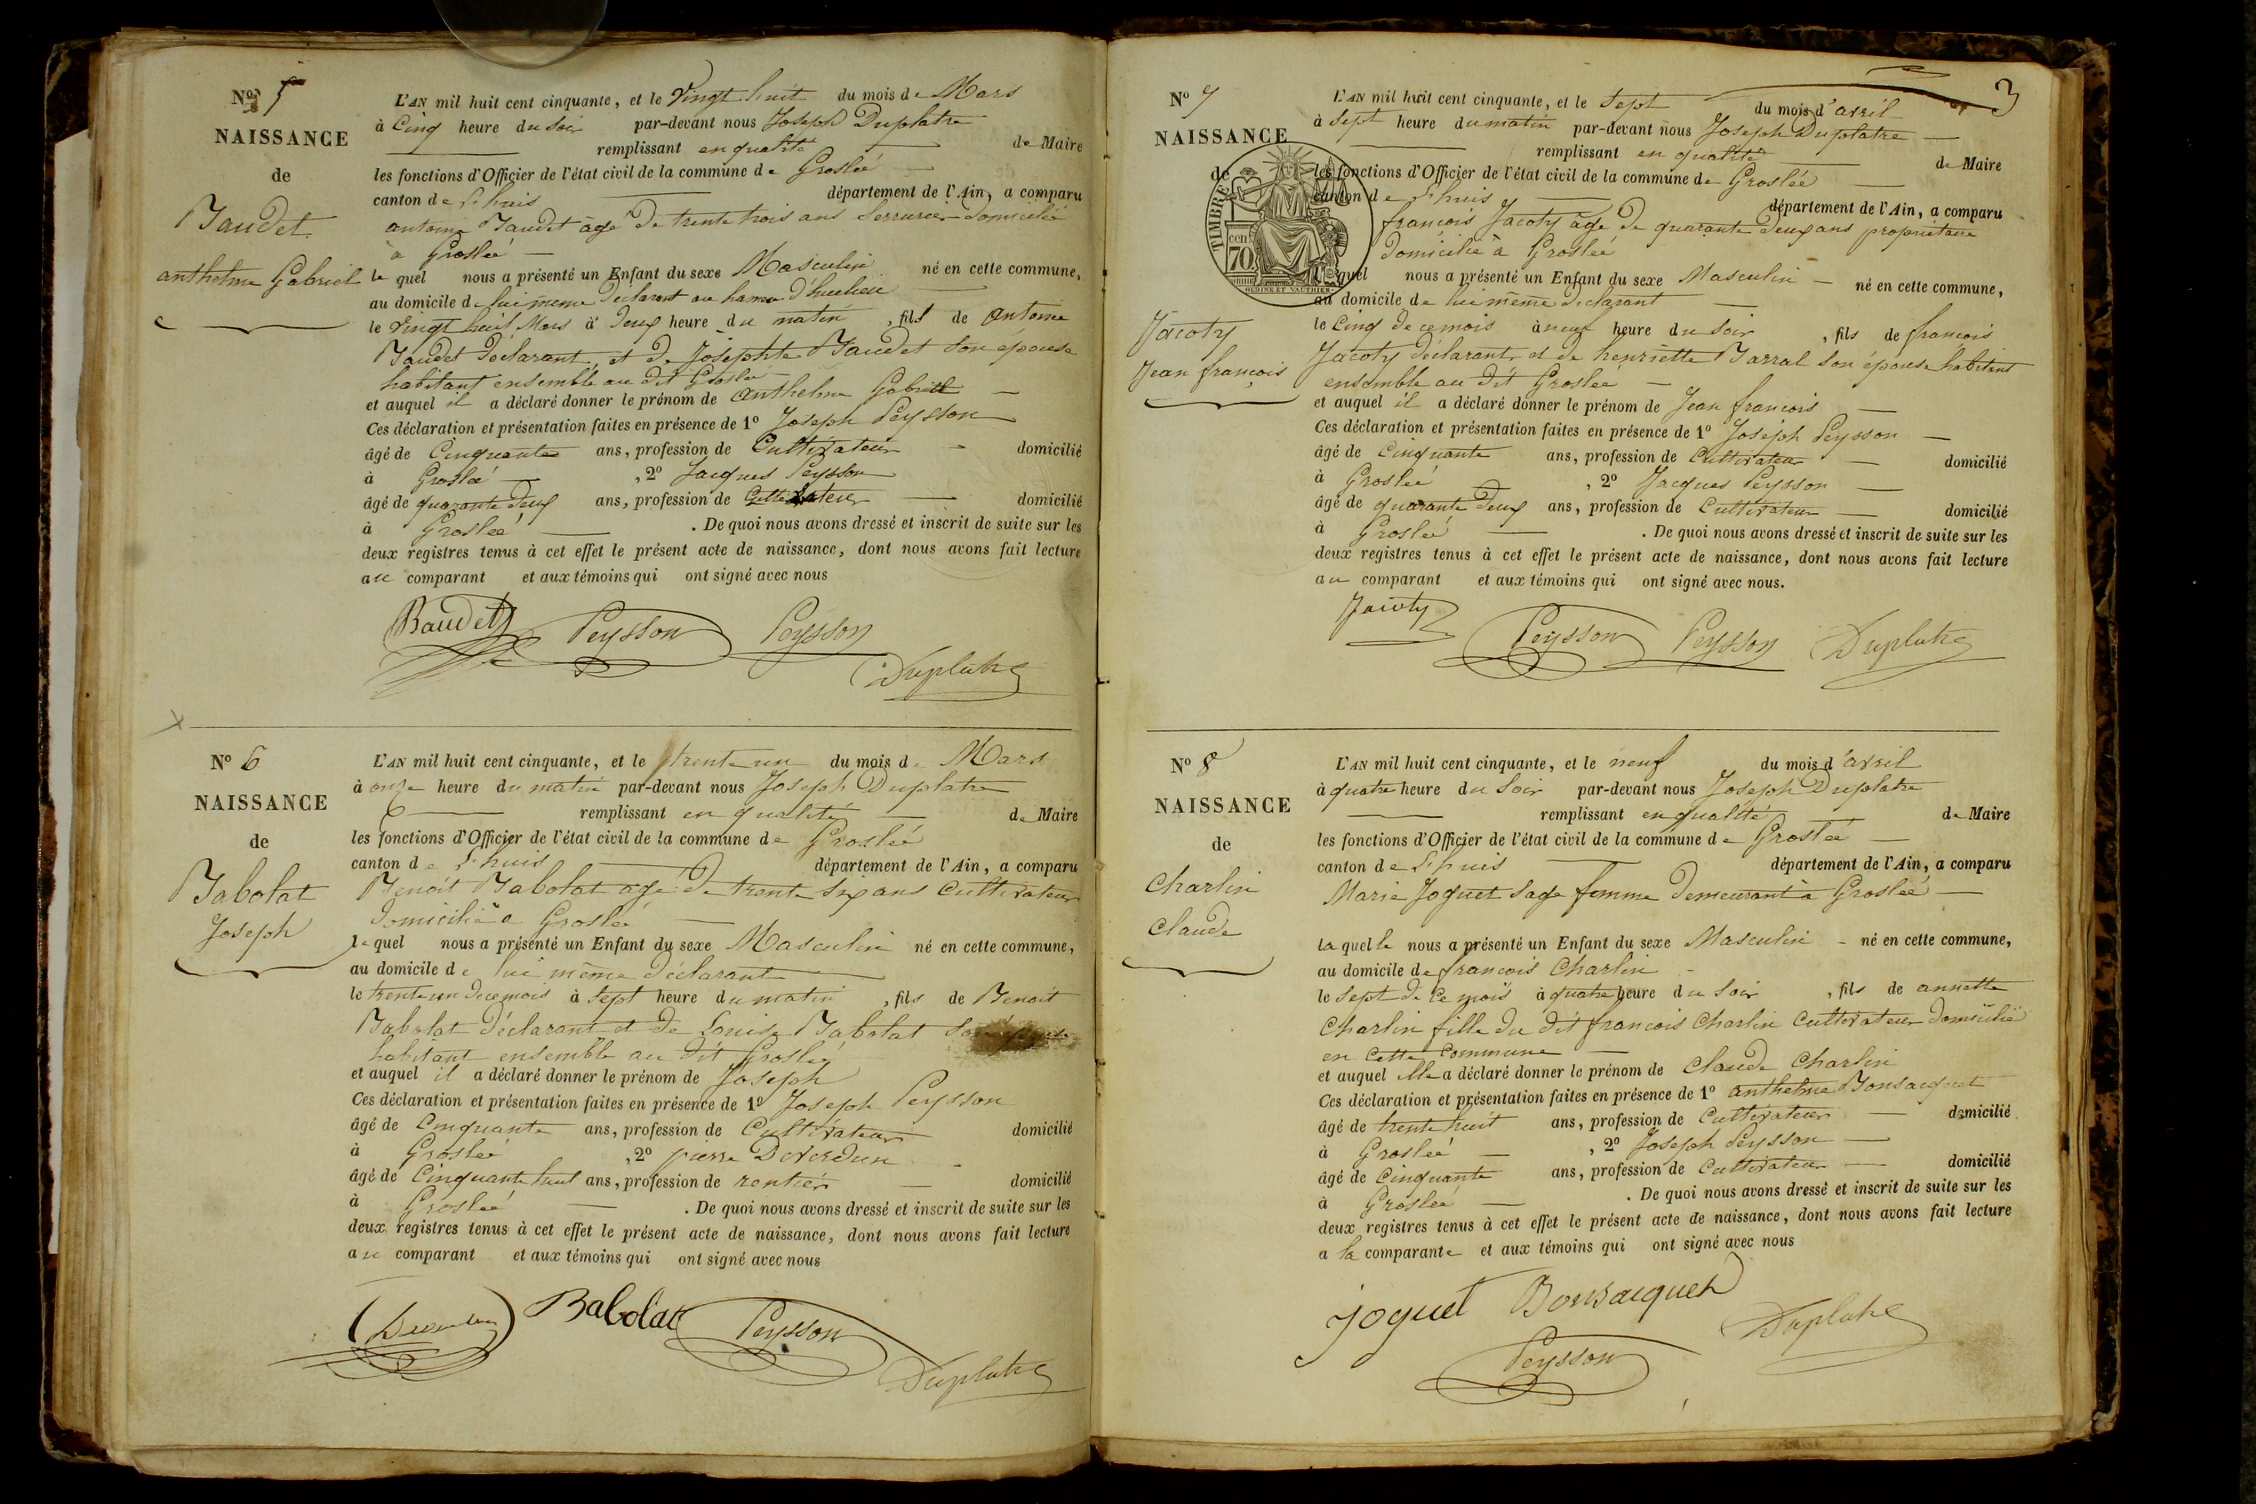 No 5
NAISSANCE
de
Baudet
anthelme Gabriel
L'AN mil huit cent cinquante, et le Vingt huit du mois de Mars
à Cinq heure du soir par-devant nous Joseph Duplatre
remplissant en qualité de Maire
les fonctions d'Officier de l'état civil de la commune de Groslée
canton de Lhuis département de l'Ain, a comparu
antoine Baudet âgé de trente trois ans Serrurier domicilié
à Groslée
le quel nous a présenté un Enfant du sexe Masculin né en cette commune,
au domicile de lui meme déclarant au hameau
le Vingt huit Mars à deux heure du matin, fils de antoine
Baudet déclarant, et de Josephte Baudet son épouse
habitant ensemble au dit Groslée
et auquel il a déclaré donner le prénom de anthelme Gabriel
Ces déclaration et présentation faites en présence de 1º Joseph Peysson
âgé de Cinquante ans, profession de Cultivateur domicilié
à Groslée, 2º Jacques Peysson
âgé de quarante deux ans, profession de Cultivateur domicilié
à Groslée. De quoi nous avons dressé et inscrit de suite sur les
deux registres tenus à cet effet le présent acte de naissance, dont nous avons fait lecture
au comparant et aux témoins qui ont signé avec nous
Baudet Peysson Peysson
Duplatre
No 6
NAISSANCE
de
Babolat
Joseph
L'AN mil huit cent cinquante, et le trente un du mois de Mars
à onze heure du matin par-devant nous Joseph Duplatre
remplissant en qualité de Maire
les fonctions d'Officier de l'état civil de la commune de Groslée
canton de Lhuis département de l'Ain, a comparu
Benoit Babolat age de trente six ans Cultivateur
domicilié a Groslée
le quel nous a présenté un Enfant du sexe Masculin né en cette commune,
au domicile de lui même déclarant
le trente un de ce mois à sept heure du matin, fils de Benoit
Babolat déclarant et de Louise Babolat son épouse
habitant ensemble au dit Groslée
et auquel il a déclaré donner le prénom de Joseph
Ces déclaration et présentation faites en présence de 1º Joseph Peysson
âgé de Cinquante ans, profession de Cultivateur domicilié
à Groslée, 2º pierre Deverdun
âgé de Cinquante huit ans, profession de rentier domicilié
à Groslée. De quoi nous avons dressé et inscrit de suite sur les
deux registres tenus à cet effet le présent acte de naissance, dont nous avons fait lecture
au comparant et aux témoins qui ont signé avec nous
Babolat Peysson
Duplatre
3
No 7
NAISSANCE
de
TIMBRE
cen 70
Jacoty
Jean françois
L'AN mil huit cent cinquante, et le Sept du mois d'avril
à sept heure du matin par-devant nous Joseph Duplatre
remplissant en qualité de Maire
les fonctions d'Officier de l'état civil de la commune de Groslée
canton de Lhuis département de l'Ain, a comparu
françois Jacoty âgé de quarante deux ans propriétaire
domicilié à Groslée
lequel nous a présenté un Enfant du sexe Masculin né en cette commune,
au domicile de lui même déclarant
le Cinq de ce mois à neuf heure du soir, fils de françois
Jacoty déclarant, et de henriette Barral son épouse habitant
ensemble au dit Groslée
et auquel il a déclaré donner le prénom de Jean françois
Ces déclaration et présentation faites en présence de 1º Joseph Peysson
âgé de Cinquante ans, profession de Cultivateur domicilié
à Groslée, 2º Jacques Peysson
âgé de quarante deux ans, profession de Cultivateur domicilié
à Groslée. De quoi nous avons dressé et inscrit de suite sur les
deux registres tenus à cet effet le présent acte de naissance, dont nous avons fait lecture
au comparant et aux témoins qui ont signé avec nous.
Jacoty
Peysson Peysson Duplatre
No 8
NAISSANCE
de
Charlin
Claude
L'AN mil huit cent cinquante, et le neuf du mois d'avril
à quatre heure du soir par-devant nous Joseph Duplatre
remplissant en qualité de Maire
les fonctions d'Officier de l'état civil de la commune de Groslée
canton de Lhuis département de l'Ain, a comparu
Marie Joguet sage femme demeurant à Groslée
laquelle nous a présenté un Enfant du sexe Masculin né en cette commune,
au domicile de françois Charlin
le sept de ce mois à quatre heure du soir, fils de annette
Charlin fille du dit françois Charlin Cultivateur domicilié
en cette commune
et auquel elle a déclaré donner le prénom de Claude Charlin
Ces déclaration et présentation faites en présence de 1º anthelme Bonsacquet
âgé de trente huit ans, profession de Cultivateur domicilié
à Groslée, 2º Joseph Peysson
âgé de Cinquante ans, profession de Cultivateur domicilié
à Groslée. De quoi nous avons dressé et inscrit de suite sur les
deux registres tenus à cet effet le présent acte de naissance, dont nous avons fait lecture
a la comparante et aux témoins qui ont signé avec nous
joguet Bonsacquet
Duplatre
Peysson